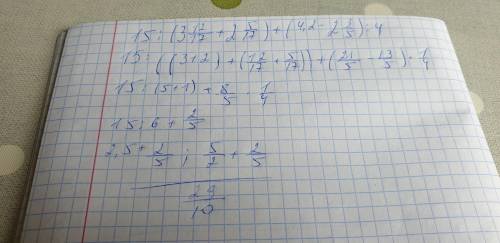 15 : (3 12/17 + 2 5/17) + (4,2 - 2 3/5) : 4
15 : ((3+2) + (12/17 + 5/17)) + (21/5 - 13/5) · 1/4
15 : (5+1) + 8/5 · 1/4
15 : 6 + 2/5
2,5 + 2/5 ; 5/2 + 2/5
29/10